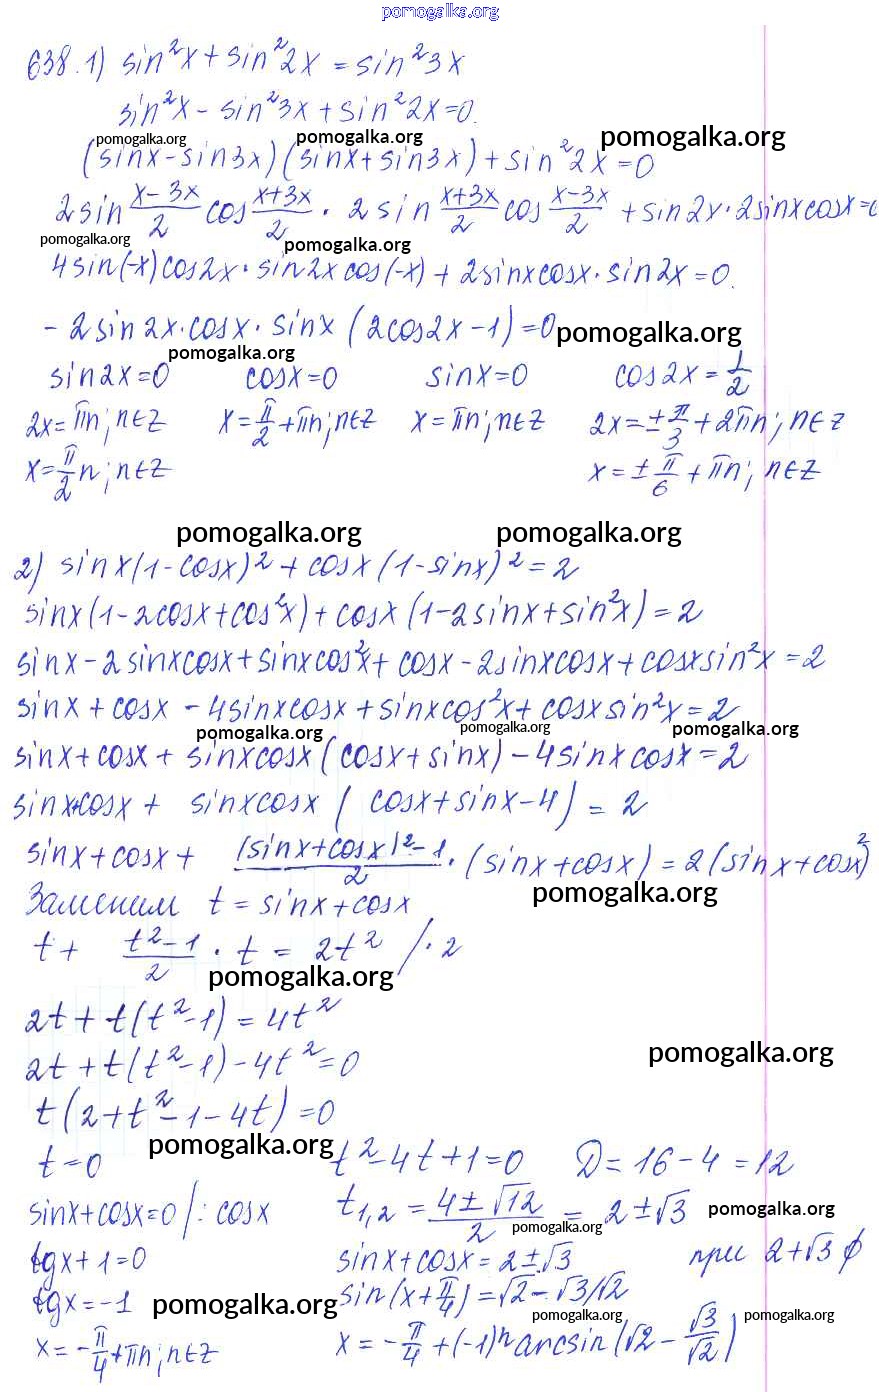 pomogalka.org
638.1) sin²x + sin²2x = sin²3x
sin²x - sin²3x + sin²2x = 0.
pomogalka.org pomogalka.org pomogalka.org
(sinx - sin3x)(sinx + sin3x) + sin²2x = 0
2sin (x-3x)/2 cos (x+3x)/2 · 2 sin (x+3x)/2 cos (x-3x)/2 + sin2x · 2sinxcosx = 0
pomogalka.org pomogalka.org
4sin(-x)cos2x · sin2xcos(-x) + 2sinxcosx · sin2x = 0.
- 2sin2x · cosx · sinx (2cos2x - 1) = 0 pomogalka.org
pomogalka.org
sin2x = 0 cosx = 0 sinx = 0 cos2x = 1/2
2x = πn; n∈Z x = π/2 + πn; n∈Z x = πn; n∈Z 2x = ± π/3 + 2πn; n∈Z
x = π/2 n; n∈Z x = ± π/6 + πn; n∈Z
pomogalka.org pomogalka.org
2) sinx(1-cosx)² + cosx(1-sinx)² = 2
sinx(1-2cosx+cos²x) + cosx(1-2sinx+sin²x) = 2
sinx - 2sinxcosx + sinxcos²x + cosx - 2sinxcosx + cosxsin²x = 2
sinx + cosx - 4sinxcosx + sinxcos²x + cosxsin²x = 2
pomogalka.org pomogalka.org pomogalka.org
sinx + cosx + sinxcosx(cosx + sinx) - 4sinxcosx = 2
sinx+cosx + sinxcosx (cosx + sinx - 4) = 2
sinx + cosx + ((sinx+cosx)² - 1)/2 · (sinx + cosx) = 2(sinx + cosx)²
Заменим t = sinx + cosx pomogalka.org
t + (t²-1)/2 · t = 2t² /·2
pomogalka.org
2t + t(t²-1) = 4t²
2t + t(t²-1) - 4t² = 0 pomogalka.org
t(2 + t² - 1 - 4t) = 0
pomogalka.org
t = 0 t² - 4t + 1 = 0 D = 16 - 4 = 12
sinx + cosx = 0 /: cosx t₁,₂ = (4±√12)/2 = 2±√3 pomogalka.org
pomogalka.org
tgx + 1 = 0 sinx + cosx = 2±√3 при 2+√3 ∅
tgx = -1 pomogalka.org sin(x + π/4) = √2 - √3/√2
pomogalka.org pomogalka.org
x = -π/4 + πn; n∈Z x = -π/4 + (-1)ⁿ arcsin(√2 - √3/√2)